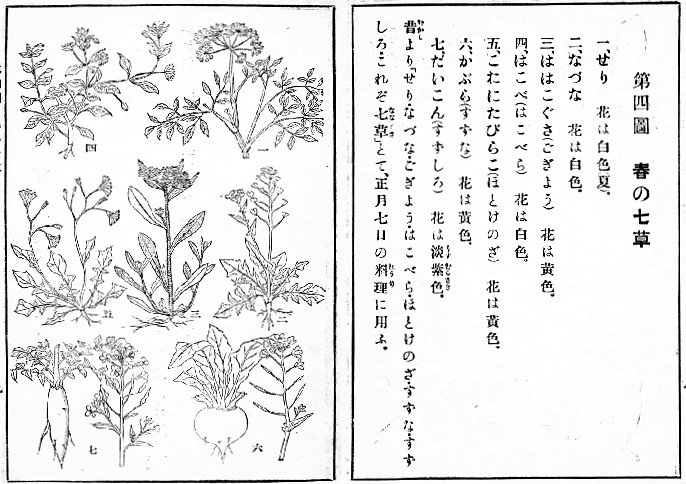 第四圖 春の七草
一、せり 花は白色(夏)。
二、なづな 花は白色。
三、ははこぐさ(ごぎよう) 花は黄色。
四、はこべ(はこべら) 花は白色。
五、こおにたびらこ(ほとけのざ) 花は黄色。
六、かぶら(すずな) 花は黄色。
七、だいこん(すずしろ) 花は淡紫色。
昔より「せり・なづな・ごぎよう・はこべら・ほとけのざ・すずな・すず
しろ・これぞ七草」とて、正月七日の料理に用ふ。
一
四
二
三
五
六
七